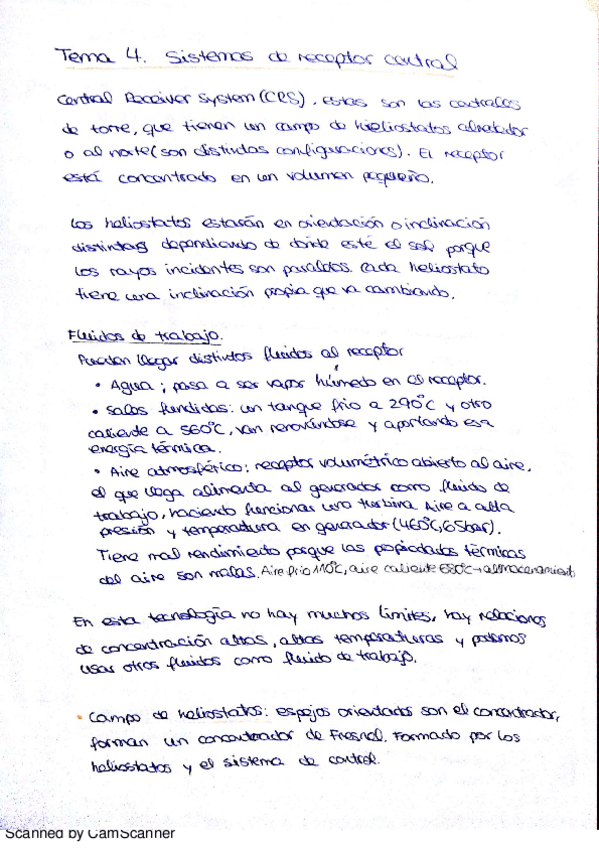 Tema 4. Sistemas de receptor central
Central Receiver System (CRS), estas son las centrales
de torre, que tienen un campo de heliostatos alrededor
o al norte (son distintas configuraciones). El receptor
está concentrado en un volumen pequeño.
Los heliostatos estarán en orientación o inclinación
distintas dependiendo de donde esté el sol porque
los rayos incidentes son paralelos. Cada heliostato
tiene una inclinación propia que va cambiando.
Fluidos de trabajo.
Pueden llegar distintos fluidos al receptor
• Agua; pasa a ser vapor húmedo en el receptor.
• Sales fundidas: un tanque frio a 290°C y otro
caliente a 560°C, van renovándose y aportando esa
energía térmica.
• Aire atmosférico: receptor volumétrico abierto al aire,
el que llega alimenta al generador como fluido de
trabajo, haciendo funcionar una turbina. Aire a alta
presión y temperatura en generador (460°C, 65bar).
Tiene mal rendimiento porque las propiedades térmicas
del aire son malas. Aire frio 110°C, aire caliente 680°C → almacenamiento
En esta tecnología no hay muchos límites, hay relaciones
de concentración altas, altas temperaturas y podemos
usar otros fluidos como fluido de trabajo.
• Campo de heliostatos: espejos orientados son el concentrador,
forman un concentrador de Fresnel. Formado por los
heliostatos y el sistema de control.
Scanned by CamScanner